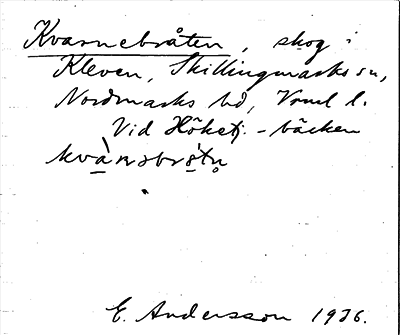 Kvarnebråten, skog i
Kleven, Skillingmarks sn,
Nordmarks hd, Vrml l.
Vid Höketj.-bäcken
E. Andersson 1926.